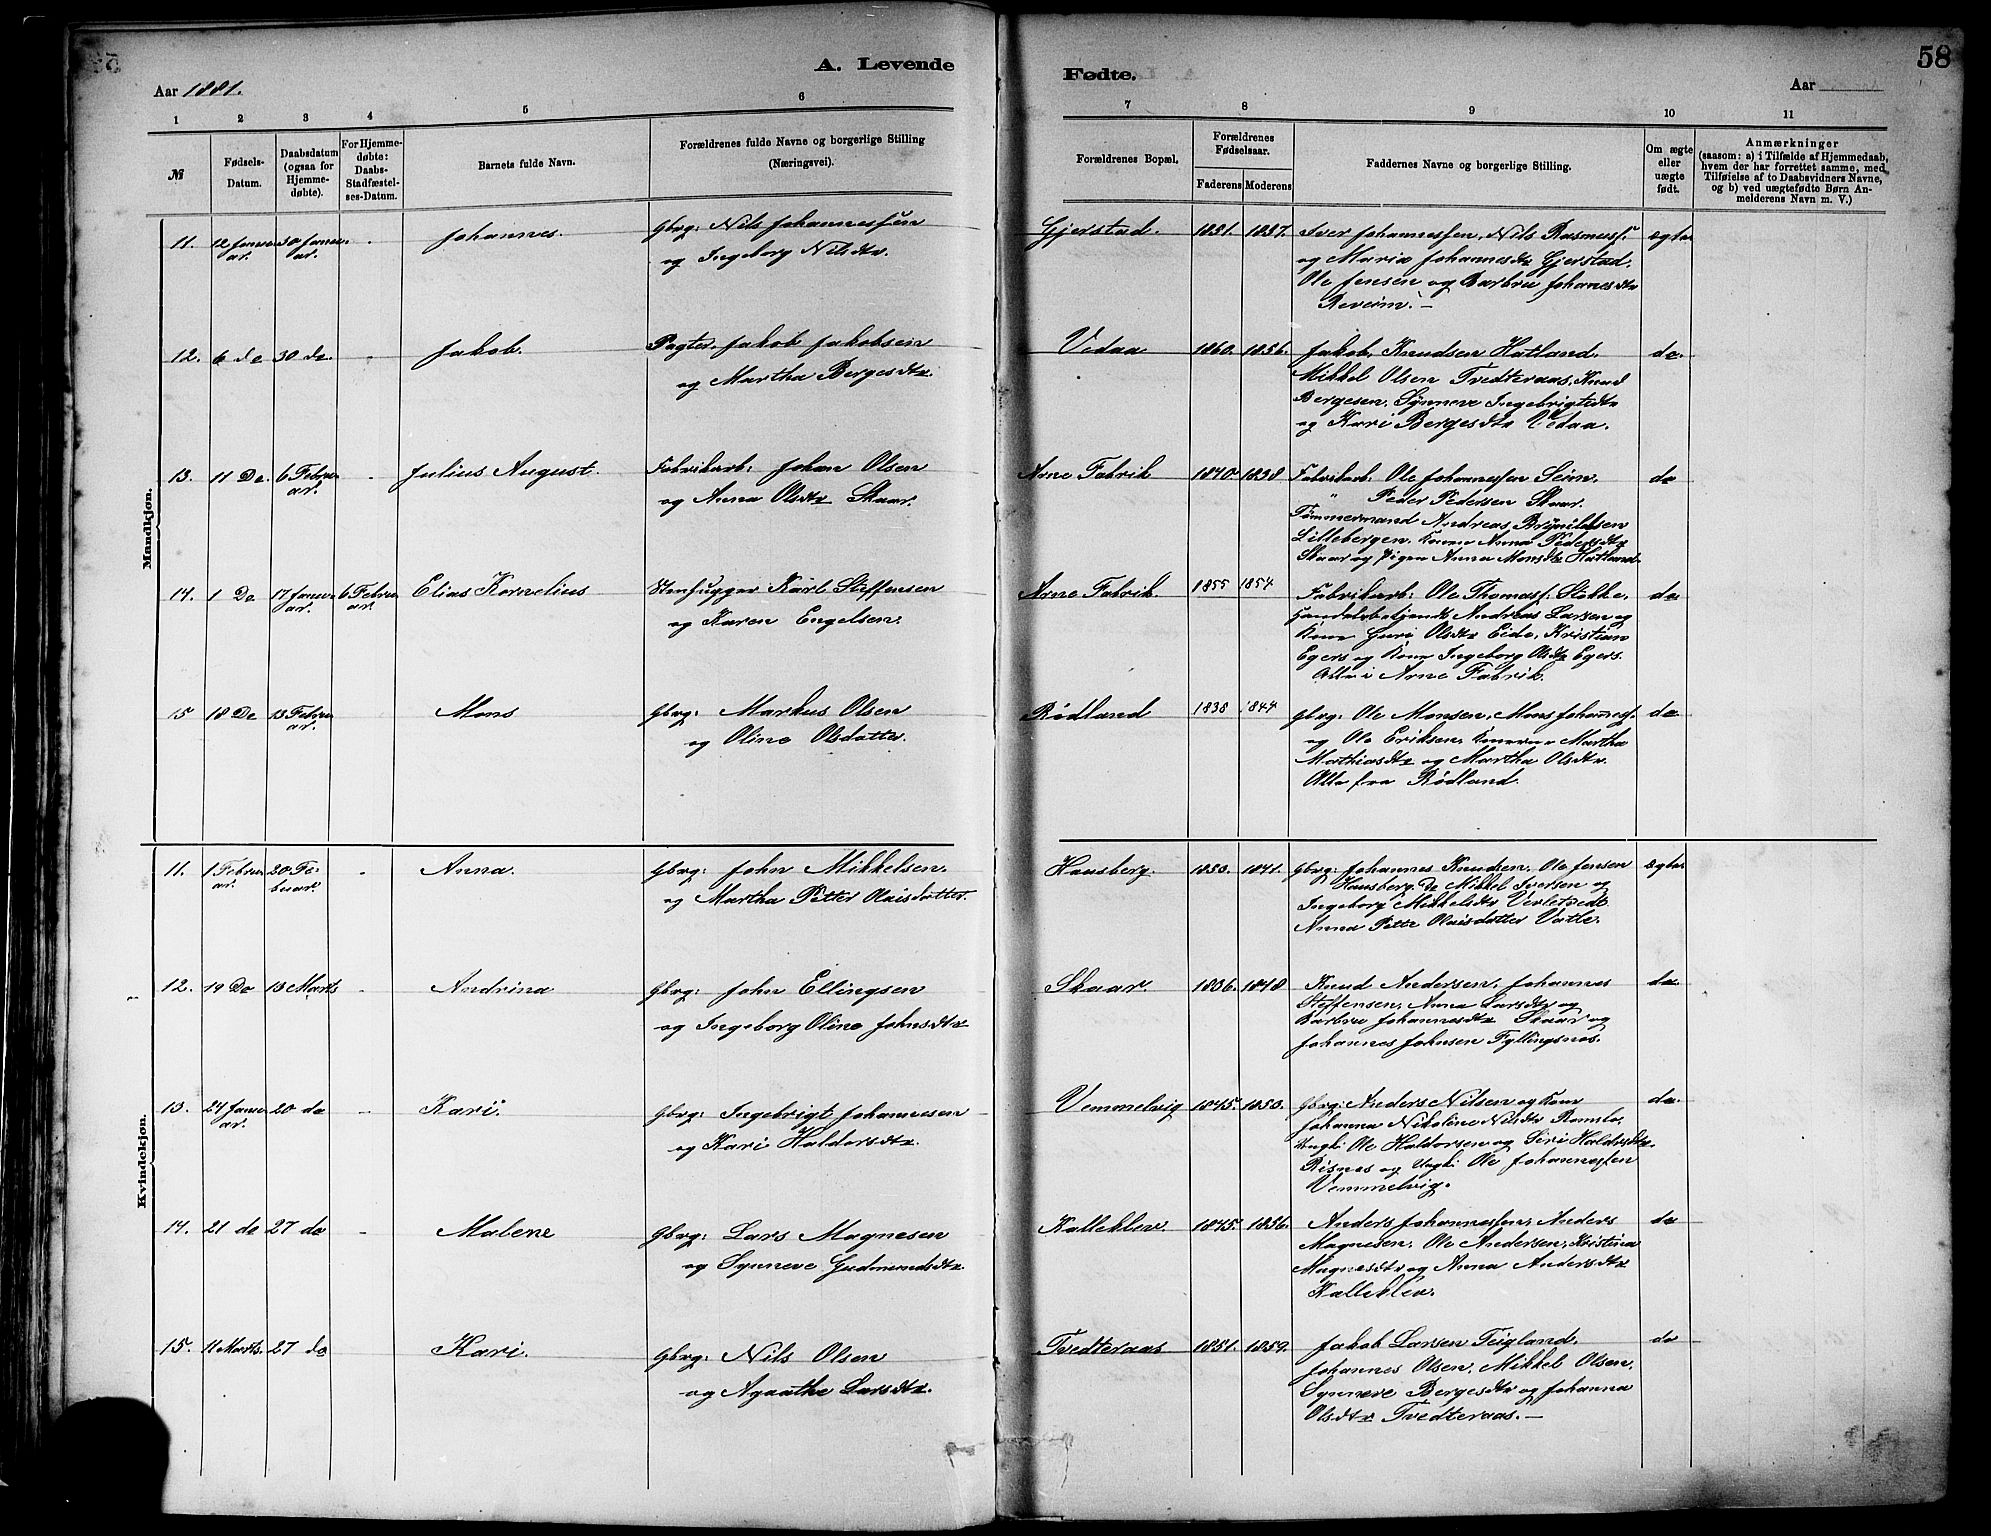 A. Levende
Fødte.
58
Aar 1881.
Aar
1 2 3 4 5 6 7 8 9 10 11
№
Fødsels-
Datum.
Daabsdatum
(ogsaa for
Hjemme-
døbte).
For Hjemme-
døbte:
Daabs-
Stadfæstel-
ses-Datum.
Barnets fulde Navn.
Forældrenes fulde Navne og borgerlige Stilling
(Næringsvei).
Forældrenes Bopæl.
Forældrenes
Fødselsaar.
Faderens Moderens
Faddernes Navne og borgerlige Stilling.
Om ægte
eller
uægte
født.
Anmærkninger
(saasom: a) i Tilfælde af Hjemmedaab,
hvem der har forrettet samme, med
Tilføielse af to Daabsvidners Navne,
og b) ved uægtefødte Børn An-
melderens Navn m. V.)
Mandkjøn.
11. 12 Janu- 30 Janu- - Johannes. Gbrg: Nils Johannessen
ar. ar. og Ingeborg Nilsdtr.
Gjerstad. 1831. 1837. Iver Johannessen, Nils Rasmuss. ægte
og Maria Johannesdtr Gjerstad.
Ole Jensen og Barbru Johannesdtr
Reveim.
12. 6 do 30 do. - Jakob. Pagter. Jakob Jakobsen
og Martha Bergesdtr.
Vedaa 1860. 1856. Jakob Knudsen Hatland. do.
Mikkel Olsen Tvedteraas, Knud
Bergesen, Synneve Ingebrigtsdtr
og Kari Bergesdtr Vedaa.
13. 11 Do. 6 Febru- - Julius August. Fabrikarb: Johan Olsen
ar. og Anna Olsdtr Skaar.
Arne Fabrik 1840. 1838 Fabrikarb: Ole Johannessen Seim. do
" Peder Pedersen Skaar.
Tømmermand Andreas Brynildsen
Lillebergen. Kone Anna Pedersdtr
Skaar og Pigen Anna Monsdtr Hatland.
14. 1 Do 17 Janu- 6 Febru- Elias Kornelius Stenhugger Karl Steffensen
ar. ar. og Karen Engelsen.
Arne Fabrik 1855 1854 Fabrikarb: Ole Thomass. Stokke, do
Handelsbetjendt Andreas Larsen og
Kone Guri Olsdtr Eide, Kristian
Egers og Kone Ingeborg Olsdtr Egers.
Alle i Arne Fabrik.
15 18 Do 13 Febru- Mons Gbrg: Markus Olsen
ar. og Oline Olsdatter.
Rødland 1838 1844 Gbrg: Ole Monsen, Mons Johanness. do
og Ole Eriksen, Konerne Martha
Mathiasdtr og Martha Olsdtr.
Alle fra Rødland.
Kvindekjøn.
11. 1 Febru- 20 Fe- - Anna. Gbrg: John Mikkelsen.
ar. bruar. og Martha Petter Olaisdatter.
Hausberg. 1850. 1841. Gbrg: Johannes Knudsen, Ole Jensen ægte
Hausberg. Do Mikkel Iversen og
Ingeborg Mikkelsdtr
Anna Pette Olaisdatter Vatle.
12. 19 Do 13 Marts - Andrina Gbrg: John Ellingsen
og Ingeborg Oline Johnsdtr
Skaar. 1836. 1848 Knud Andersen, Johannes do
Steffensen, Anna Larsdtr og
Barbru Johannesdtr Skaar og
Johannes Johnsen Fyllingsnes.
13. 24 Janu- 20 do - Kari. Gbrg: Ingebrigt Johannesen
ar. og Kari Haldorsdtr.
Vemmelvig 1845. 1850. Gbrg: Anders Nilsen og Kone do
Johanna Nikoline Nilsdtr Romslo,
Ungk: Ole Haldorsen og Siri Haldorsdtr.
Risnes og Ungk: Ole Johannessen
Vemmelvig.
14. 21 do 27 do - Malene Gbrg: Lars Magnesen
og Synneve Gudmundsdtr.
Kalleklev. 1845. 1836. Anders Johannessen, Anders do
Magnesen, Ole Andersen, Kristina
Magnesdtr og Anna Andersdtr
Kalleklev.
15. 11 Marts. 27 do Kari. Gbrg: Nils Olsen
og Agaathe Larsdtr.
Tvedteraas 1851. 1859. Jakob Larsen Teigland. do
Johannes Olsen, Mikkel Olsen,
Synneve Bergesdtr og Johanna
Olsdtr Tvedteraas.